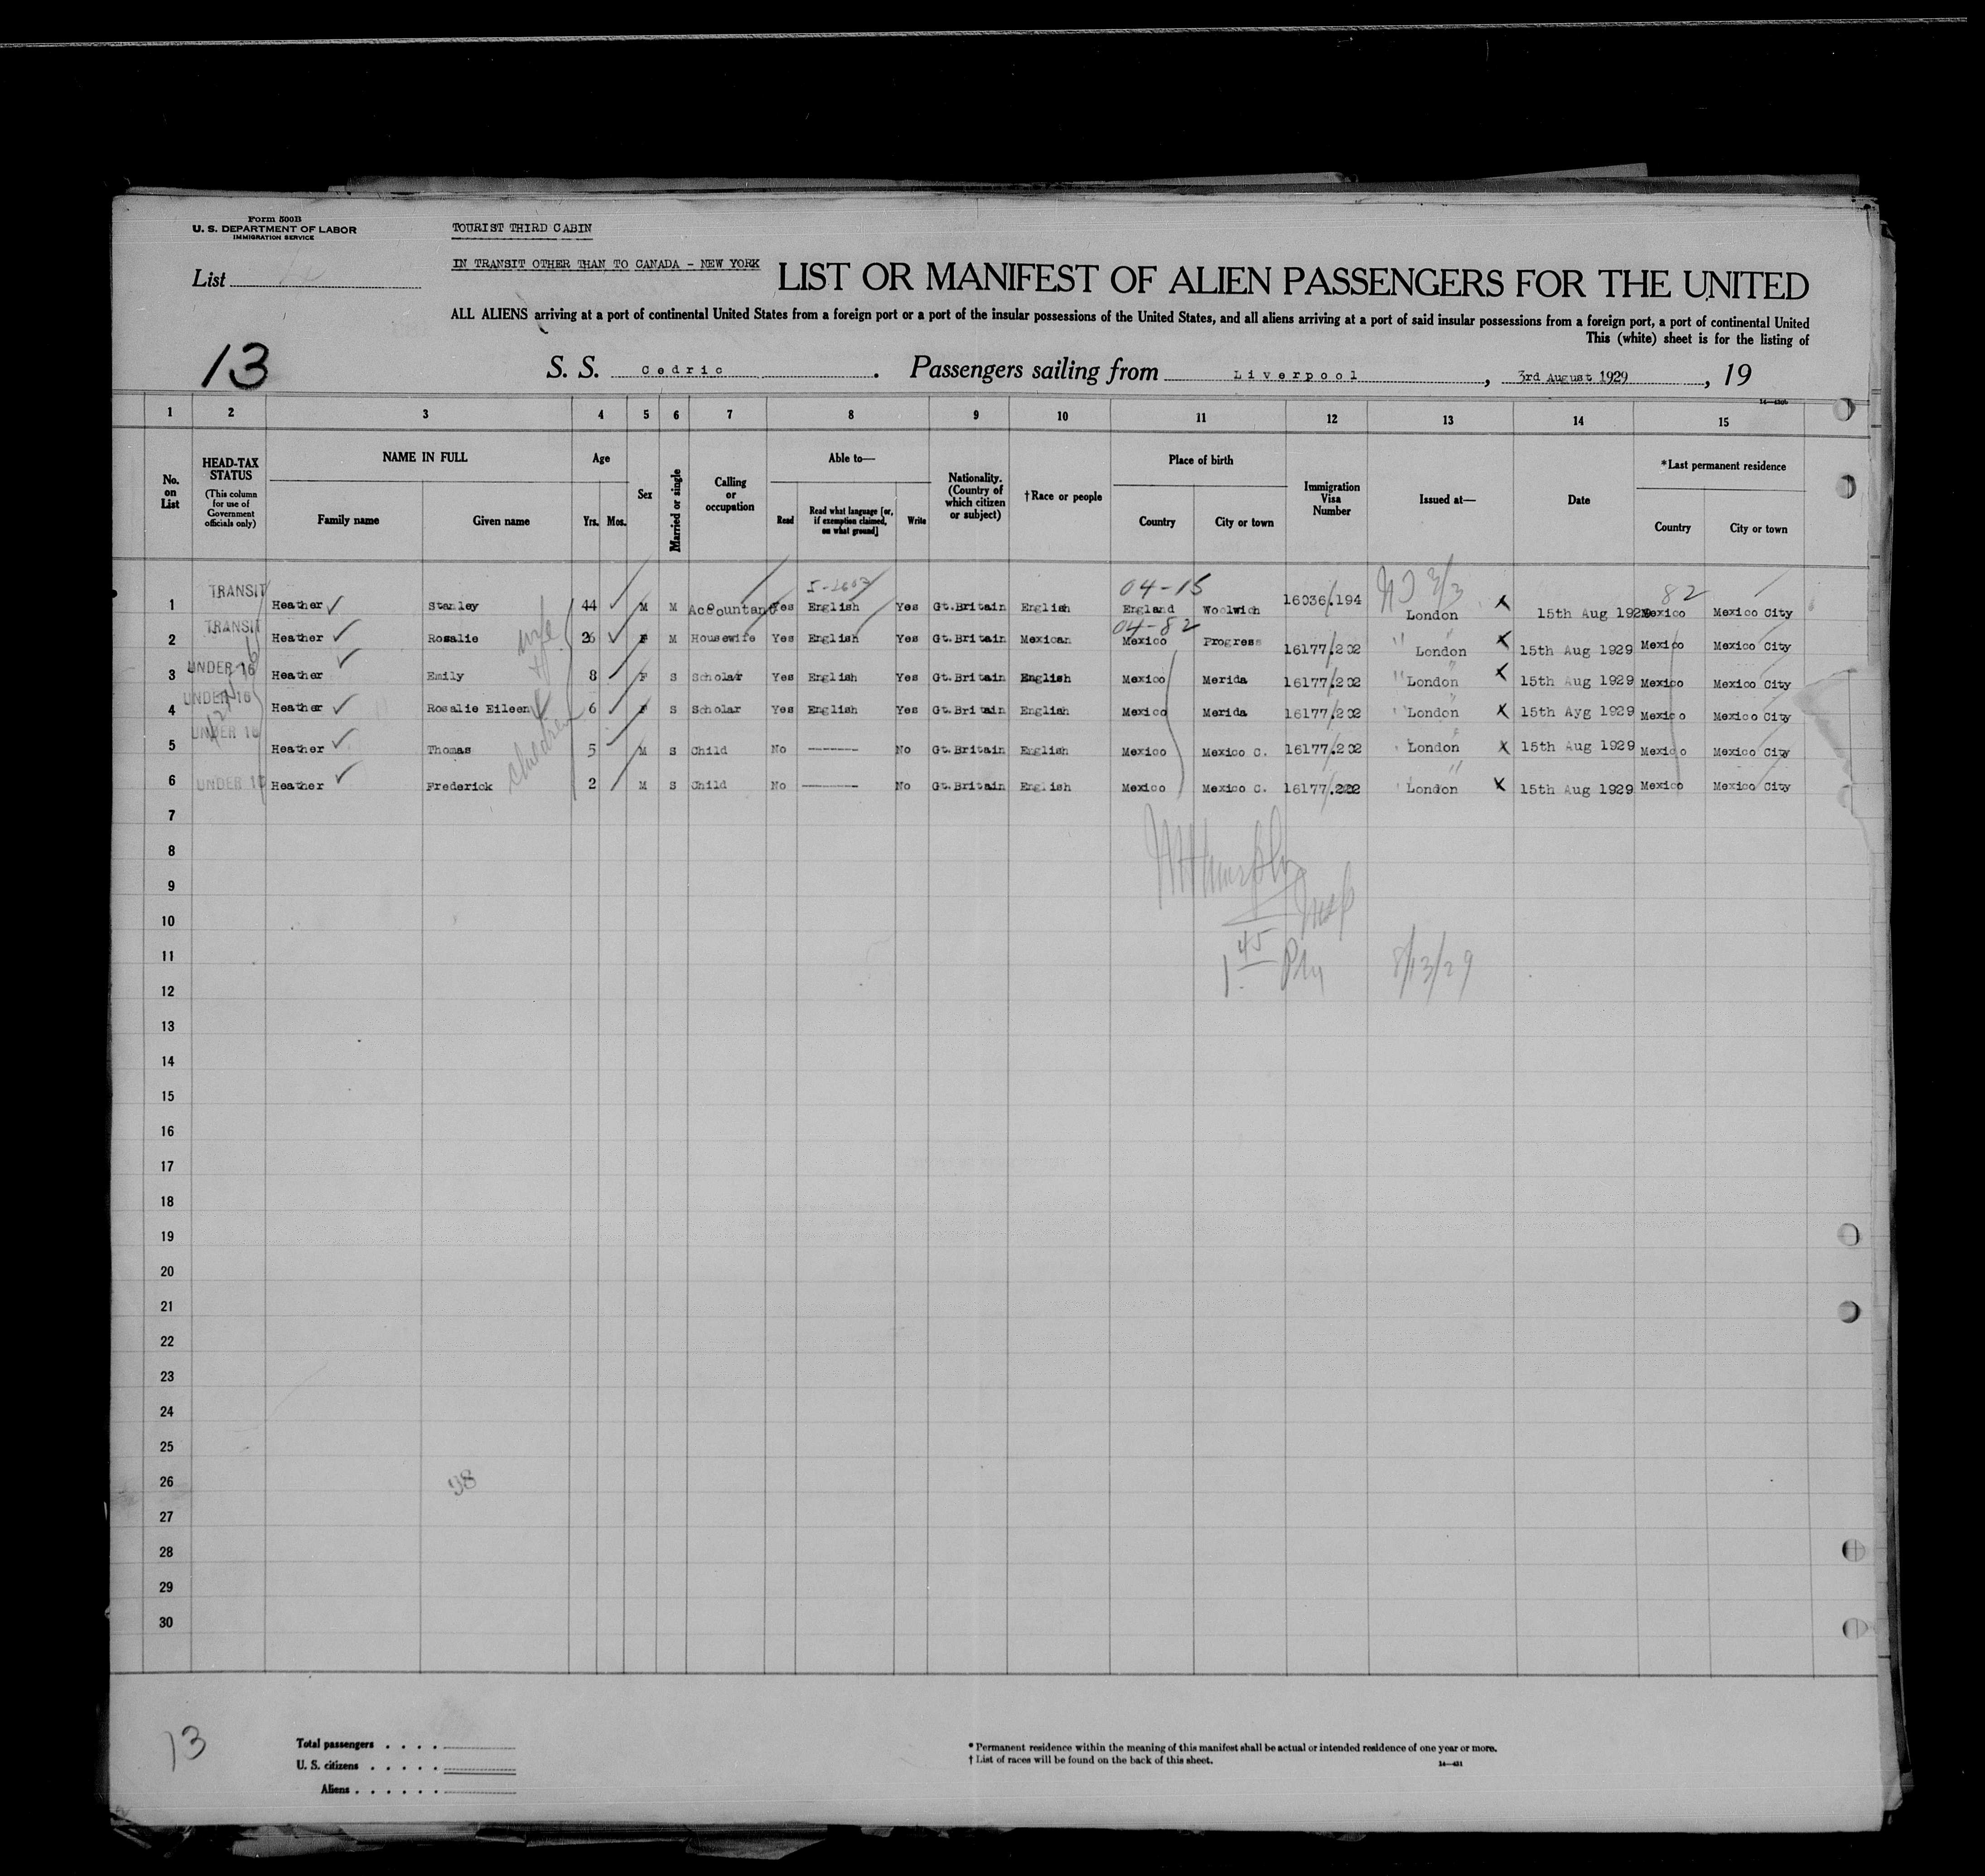 Form 500B
U. S. DEPARTMENT OF LABOR
IMMIGRATION SERVICE
TOURIST THIRD CABIN
IN TRANSIT OTHER THAN TO CANADA - NEW YORK
List
LIST OR MANIFEST OF ALIEN PASSENGERS FOR THE UNITED
ALL ALIENS arriving at a port of continental United States from a foreign port or a port of the insular possessions of the United States, and all aliens arriving at a port of said insular possessions from a foreign port, a port of continental United
This (white) sheet is for the listing of
13
S. S. Cedric. Passengers sailing from Liverpool, 3rd August 1929, 19
1 2 3 4 5 6 7 8 9 10 11 12 13 14 15
No. on List
HEAD-TAX STATUS (This column for use of Government officials only)
NAME IN FULL
Family name Given name
Age
Yrs. Mos.
Sex
Married or single
Calling or occupation
Able to—
Read Read what language [or, if exemption claimed, on what ground] Write
Nationality. (Country of which citizen or subject)
†Race or people
Place of birth
Country City or town
Immigration Visa Number
Issued at—
Date
*Last permanent residence
Country City or town
04-15
82
1 TRANSIT Heather Stanley 44 M M Accountant Yes English Yes Gt.Britain English England Woolwich 16036/194 London X 15th Aug 1929 Mexico Mexico City
04-82
2 TRANSIT Heather Rosalie wife 26 F M Housewife Yes English Yes Gt.Britain Mexican Mexico Progress 16177/202 " London X 15th Aug 1929 Mexico Mexico City
3 UNDER 16 Heather Emily 8 F S Scholar Yes English Yes Gt.Britain English Mexico Merida 16177/202 " London X 15th Aug 1929 Mexico Mexico City
4 UNDER 16 Heather Rosalie Eileen 6 F S Scholar Yes English Yes Gt.Britain English Mexico Merida 16177/202 " London X 15th Ayg 1929 Mexico Mexico City
children
5 UNDER 16 Heather Thomas 5 M S Child No ------- No Gt.Britain English Mexico Mexico C. 16177/202 London X 15th Aug 1929 Mexico Mexico City
6 UNDER 16 Heather Frederick 2 M S Child No ------- No Gt.Britain English Mexico Mexico C. 16177/202 London X 15th Aug 1929 Mexico Mexico City
7
8
9
10
11
1 45 PM 8/13/29
12
13
14
15
16
17
18
19
20
21
22
23
24
25
26
98
27
28
29
30
13
Total passengers . . . .
U. S. citizens . . . . .
Aliens . . . . . .
* Permanent residence within the meaning of this manifest shall be actual or intended residence of one year or more.
† List of races will be found on the back of this sheet.